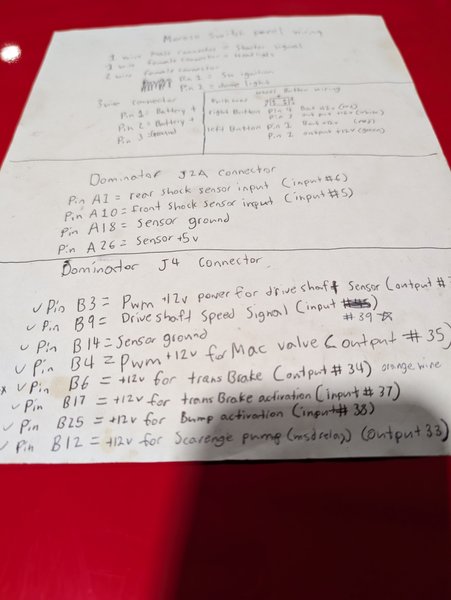 Moroso Switch panel wiring
1 wire male connector = Starter Signal
1 wire female connector =
2 wire female connector
Pin 1 = 5w ignition
Pin 2 = light
3 wire connector
Pin 1 = Battery +
Pin 2 = Battery +
Pin 3 = ground
wheel Button wiring
right Button Pin 4 Bat +12v (red)
Pin 3 output +12v (white)
left Button Pin 1 Bat +12v (red)
Pin 2 output +12v (green)
Dominator J2A connector
Pin A1 = rear shock sensor input (input #6)
Pin A10 = front shock sensor input (input #5)
Pin A18 = Sensor ground
Pin A26 = Sensor +5v
Dominator J4 Connector
✓ Pin B3 = Pwm +12v power for driveshaft Sensor (output #
✓ Pin B9 = Driveshaft Speed Signal (input
#39 ☆
✓ Pin B14 = Sensor ground
✓ Pin B4 = Pwm +12v for Mac valve (output #35)
* ✓ Pin B6 = +12v for transBrake (output #34) orange wire
✓ Pin B17 = +12v for transBrake activation (input #37)
✓ Pin B25 = +12v for Bump activation (input #38)
✓ Pin B12 = +12v for Scavenge pump (msd relay) (output 33)